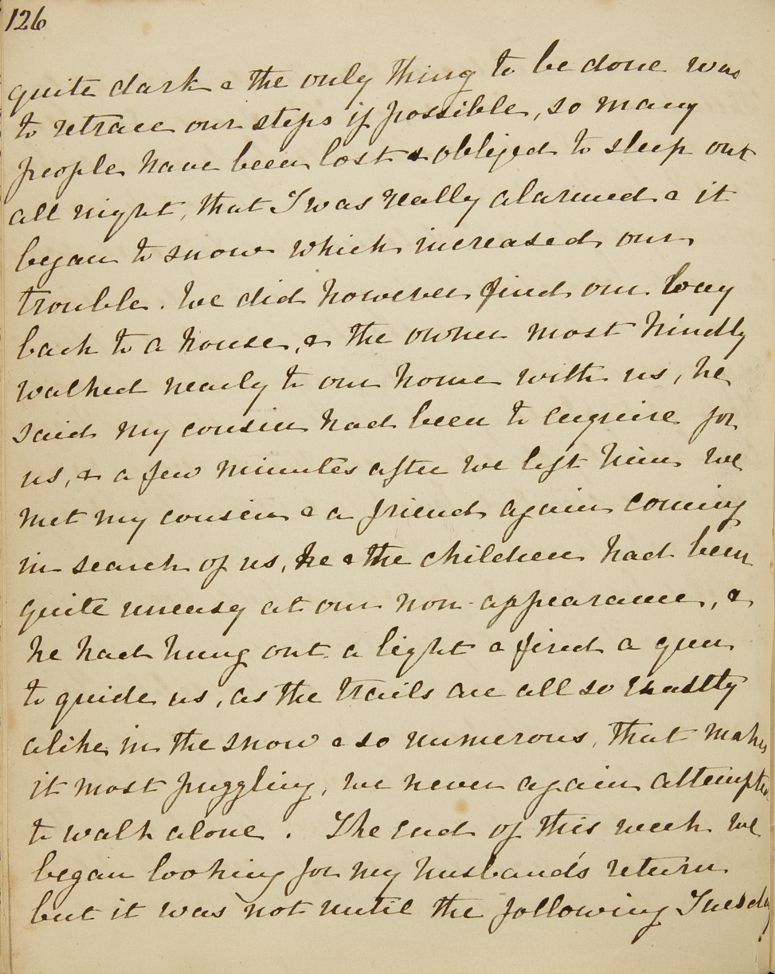 126
quite dark & the only thing to be done was
to retrace our steps if possible, so many
people have been lost & obliged to sleep out
all night, that I was really alarmed & it
began to snow which increased our
trouble. We did however find our way
back to a house, & the owner most kindly
walked nearly to our home with us, he
said my cousin had been to enquire for
us, & a few minutes after we left him we
met my cousin & a friend again coming
in search of us, he & the children had been
quite uneasy at our non-appearance, &
he had hung out a light & fired a gun
to guide us, as the trails are all so exactly
alike in the snow & so numerous, that makes
it most puzzling, we never again attempted
to walk alone. The end of this week we
began looking for my husband's return
but it was not until the following Tuesday